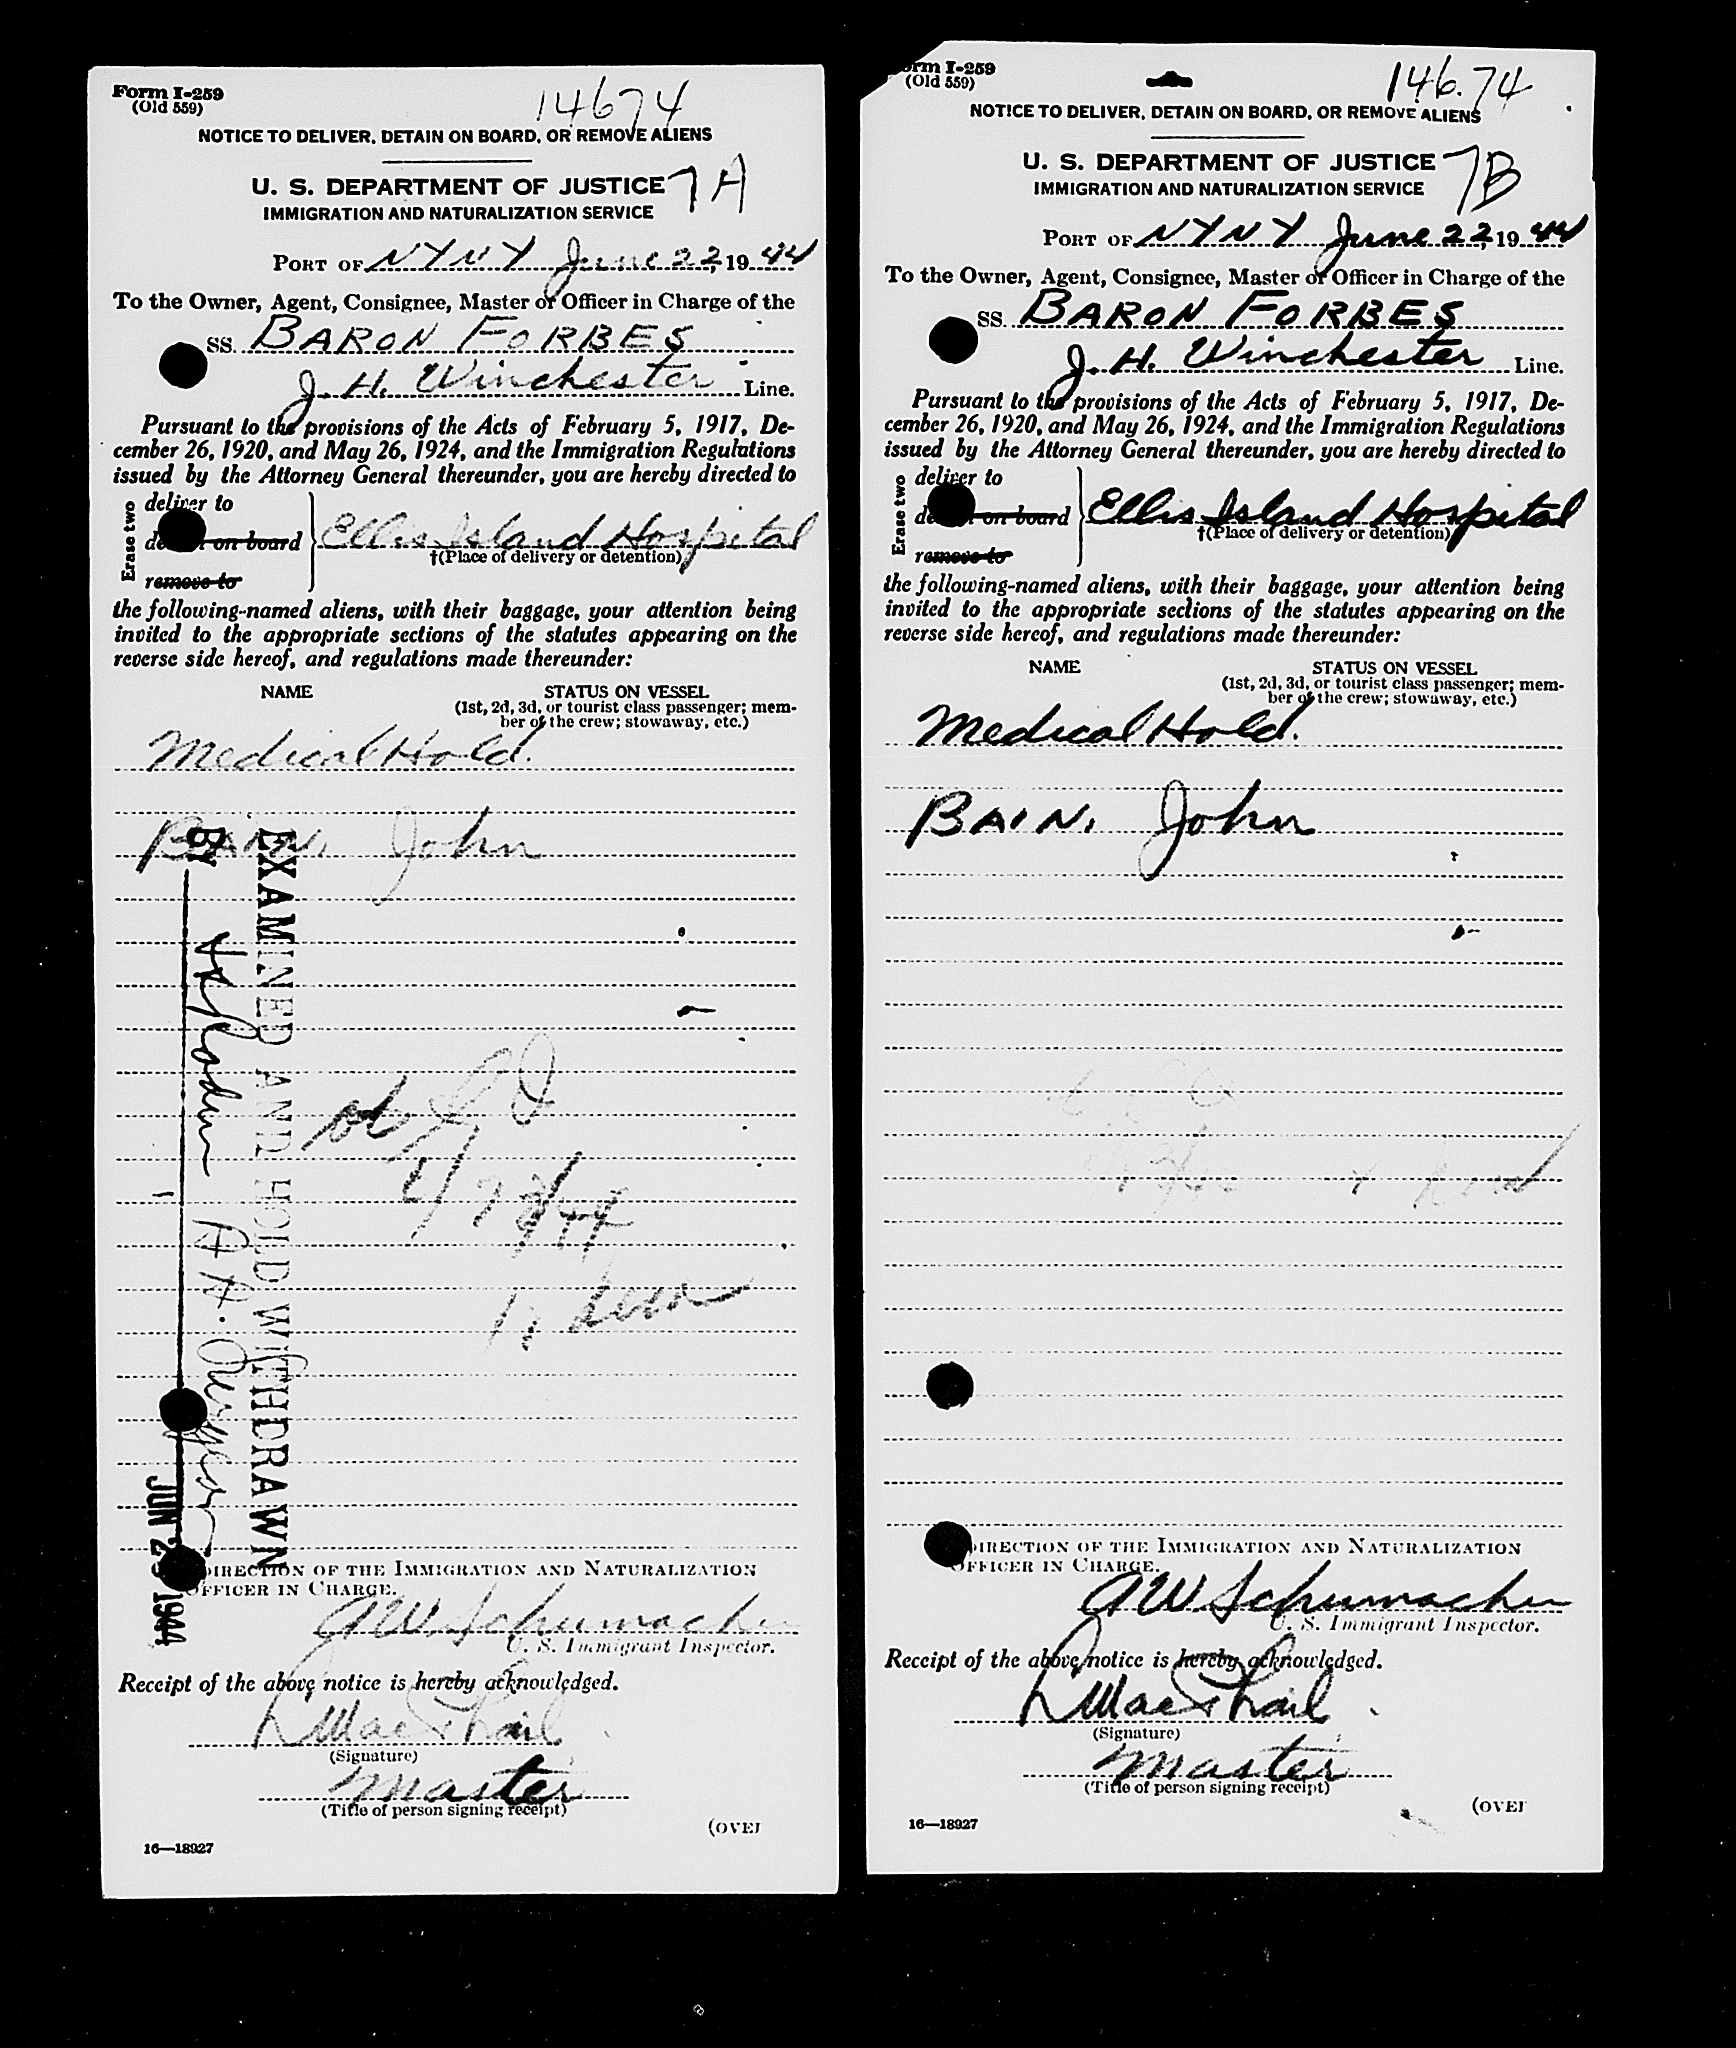 Form I-259
(Old 559)
14674
NOTICE TO DELIVER, DETAIN ON BOARD, OR REMOVE ALIENS
U. S. DEPARTMENT OF JUSTICE 7A
IMMIGRATION AND NATURALIZATION SERVICE
PORT OF NYNY June 22, 19 44
To the Owner, Agent, Consignee, Master or Officer in Charge of the
SS. BARON FORBES
J. H. Winchester Line.
Pursuant to the provisions of the Acts of February 5, 1917, De-
cember 26, 1920, and May 26, 1924, and the Immigration Regulations
issued by the Attorney General thereunder, you are hereby directed to
Erase two
deliver to
on board
remove to
Ellis Island Hospital
†(Place of delivery or detention)
the following-named aliens, with their baggage, your attention being
invited to the appropriate sections of the statutes appearing on the
reverse side hereof, and regulations made thereunder:
NAME STATUS ON VESSEL
(1st, 2d, 3d, or tourist class passenger; mem-
ber of the crew; stowaway, etc.)
Medical Hold.
BAIN, John
EXAMINED AND HOLD WITHDRAWN
BY
JUN 23 1944
DIRECTION OF THE IMMIGRATION AND NATURALIZATION
OFFICER IN CHARGE.
AW Schumacher
U. S. Immigrant Inspector.
Receipt of the above notice is hereby acknowledged.
MacPhail
(Signature)
Master
(Title of person signing receipt)
(OVER
16—18927
Form I-259
(Old 559)
146.74
NOTICE TO DELIVER, DETAIN ON BOARD, OR REMOVE ALIENS
U. S. DEPARTMENT OF JUSTICE 7B
IMMIGRATION AND NATURALIZATION SERVICE
PORT OF NYNY June 22, 19 44
To the Owner, Agent, Consignee, Master or Officer in Charge of the
SS. BARON FORBES
J. H. Winchester Line.
Pursuant to the provisions of the Acts of February 5, 1917, De-
cember 26, 1920, and May 26, 1924, and the Immigration Regulations
issued by the Attorney General thereunder, you are hereby directed to
Erase two
deliver to
on board
remove to
Ellis Island Hospital
†(Place of delivery or detention)
the following-named aliens, with their baggage, your attention being
invited to the appropriate sections of the statutes appearing on the
reverse side hereof, and regulations made thereunder:
NAME STATUS ON VESSEL
(1st, 2d, 3d, or tourist class passenger; mem-
ber of the crew; stowaway, etc.)
Medical Hold.
BAIN, John
DIRECTION OF THE IMMIGRATION AND NATURALIZATION
OFFICER IN CHARGE.
AW Schumacher
U. S. Immigrant Inspector.
Receipt of the above notice is hereby acknowledged.
MacPhail
(Signature)
Master
(Title of person signing receipt)
(OVER
16—18927